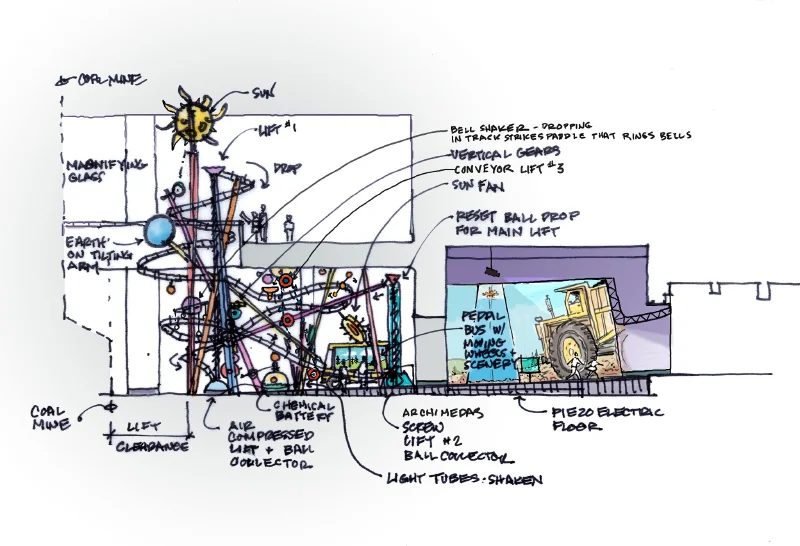 COAL MINE
SUN
LIFT #1
DROP
MAGNIFYING
GLASS
EARTH
ON TILTING
ARM
BELL SHAKER - DROPPING
IN TRACK STRIKES PADDLE THAT RINGS BELLS
VERTICAL GEARS
CONVEYOR LIFT #3
SUN FAN
RESET BALL DROP
FOR MAIN LIFT
PEDDAL
BUS W/
MOVING
WHEELS +
SCENERY
COAL
MINE
LIFT
CLEARANCE
AIR
COMPRESSED
LIFT + BALL
COLLECTOR
CHEMICAL
BATTERY
ARCHIMEDAS
SCREW
LIFT #2
BALL COLLECTOR
LIGHT TUBES - SHAKEN
PIEZO ELECTRIC
FLOOR